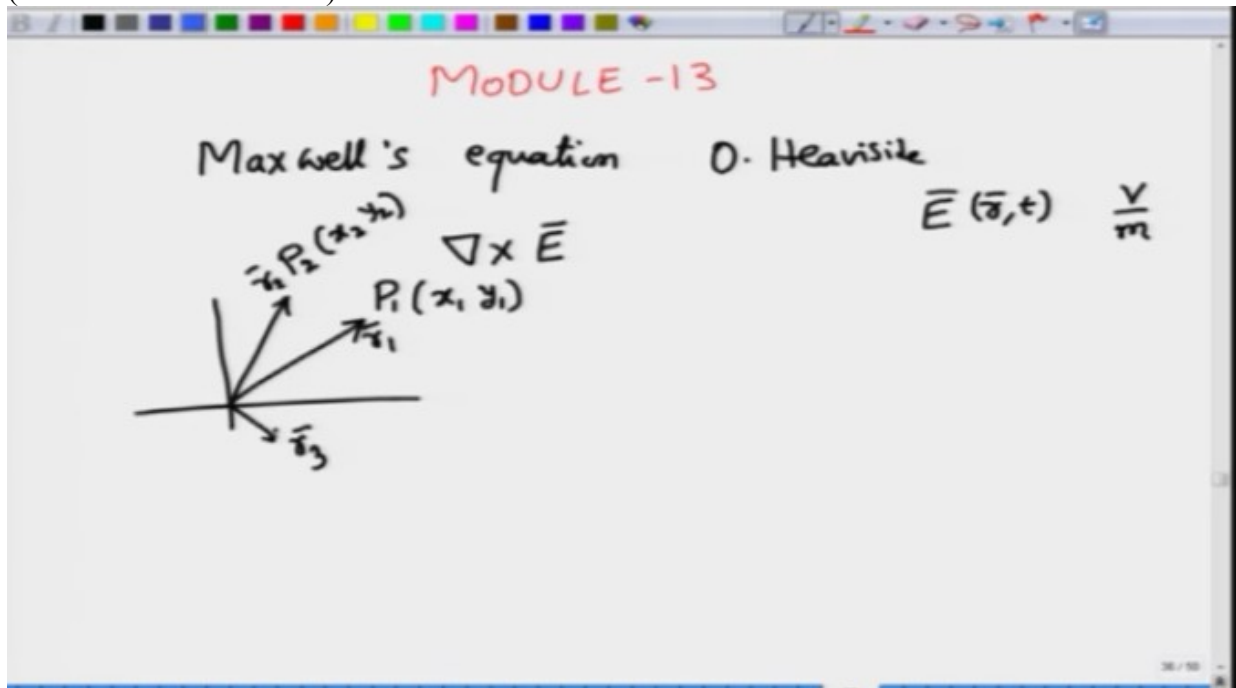 MODULE -13
Maxwell's equation O. Heaviside
E̅ (r̅, t) V/m
r̅₂ P₂ (x₂ y₂) ∇ × E̅
P₁ (x₁ y₁)
r̅₁
r̅₃
36 / 50